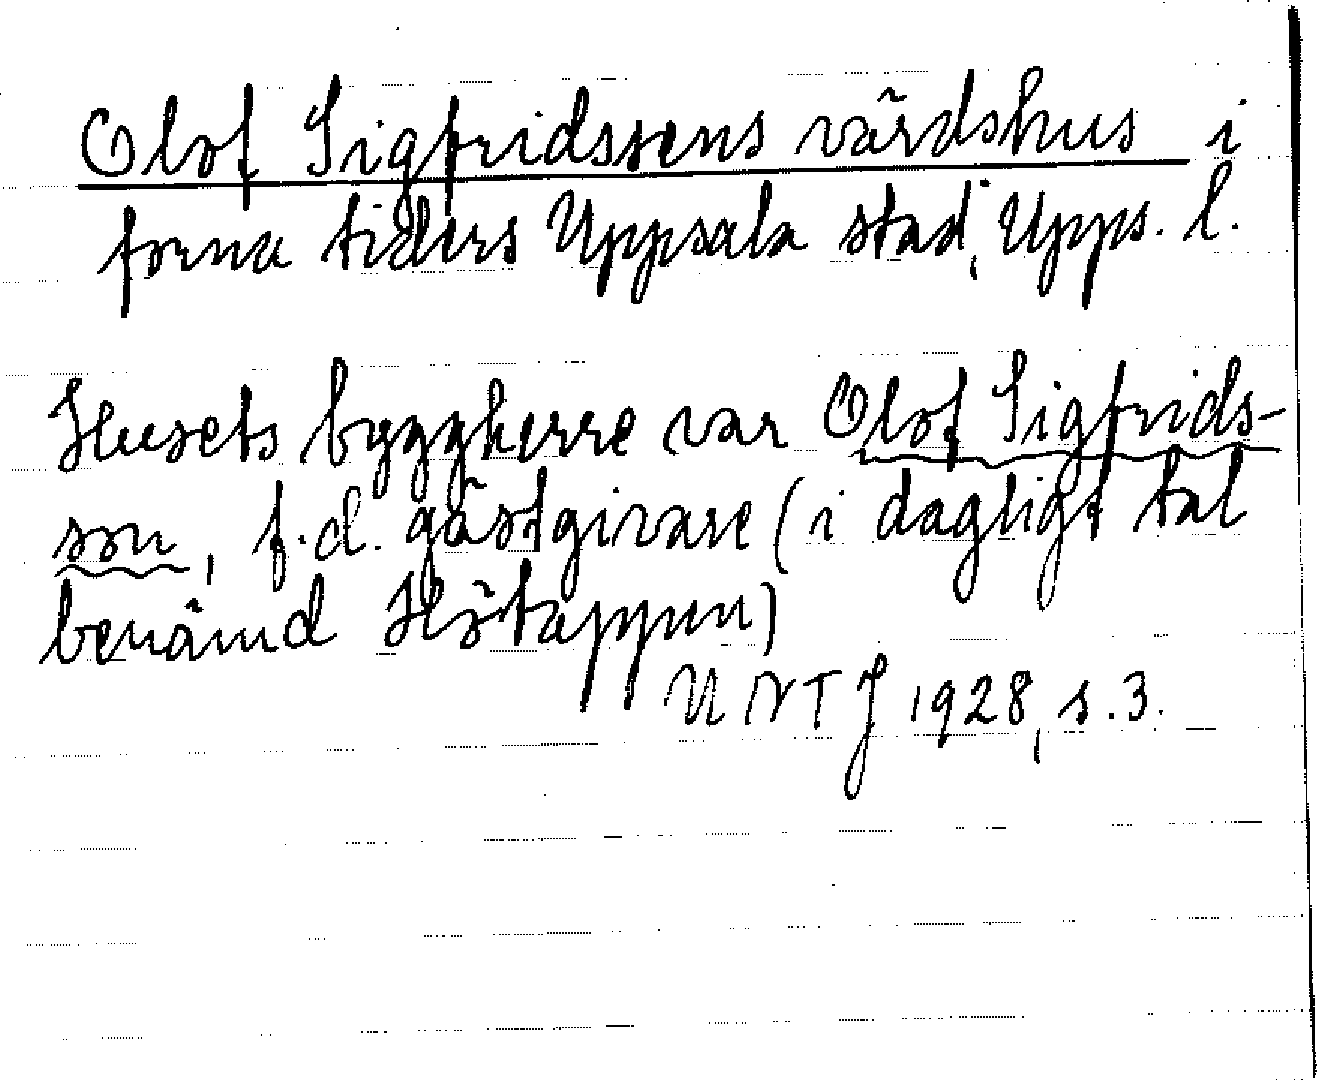 Olof Sigfridssens värdshus i
forna tiders Uppsala stad, Upps. l.
Husets byggherre var Olof Sigfrids-
son, f.d. gästgivare (i dagligt tal
benämd Hötappen)
UNTJ 1928, s. 3.